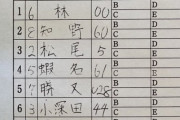 1 6 林 00 B D
C E
2 2 知野 60 B D
C E
3 2 松尾 5 B D
C E
4 5 蝦名 61 B D
C E
5 7 勝又 028 B D
C E
6 3 小窪田 44 B D
C E